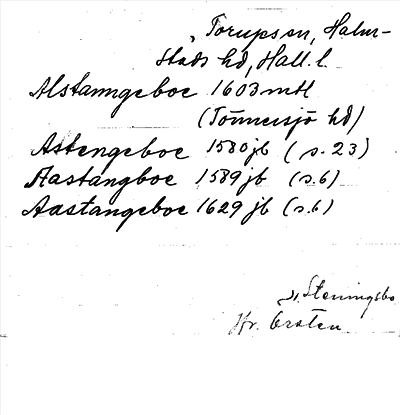 Torups sn, Halm-
stads hd, Hall. l.
Alstanngeboe 1603 mtl
(Tönnersjö hd)
Astengeboe 1580 jb (s. 23)
Aastangboe 1589 jb (s. 6)
Aastangeboe 1629 jb (s. 6)
Steningsbo
Hr.